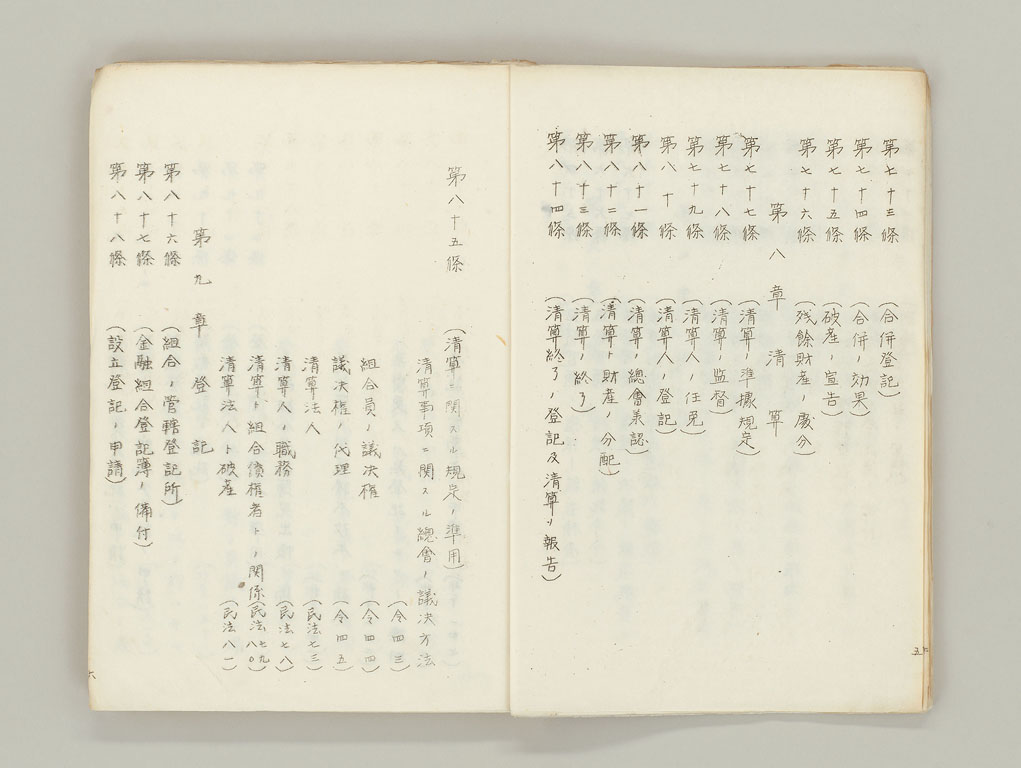 第七十三條 (合併登記)
第七十四條 (合併ノ効果)
第七十五條 (破産ノ宣告)
第七十六條 (残餘財産ノ處分)
第八章 清算
第七十七條 (清算ノ準據規定)
第七十八條 (清算ノ監督)
第七十九條 (清算人ノ任免)
第八十條 (清算人ノ登記)
第八十一條 (清算ノ總會承認)
第八十二條 (清算ト財産ノ分配)
第八十三條 (清算ノ終了)
第八十四條 (清算終了ノ登記及清算ノ報告)
五
第八十五條 (清算ニ関スル規定ノ準用)
清算事項ニ関スル總會ノ議決方法 (令四三)
組合員ノ議決権 (令四四)
議決権ノ代理 (令四五)
清算法人 (民法七三)
清算人ノ職務 (民法七八)
清算ト組合債権者トノ関係 (民法七九、八〇)
清算法人ト破産 (民法八一)
第九章 登記
第八十六條 (組合ノ管轄登記所)
第八十七條 (金融組合登記簿ノ備付)
第八十八條 (設立登記ノ申請)
六